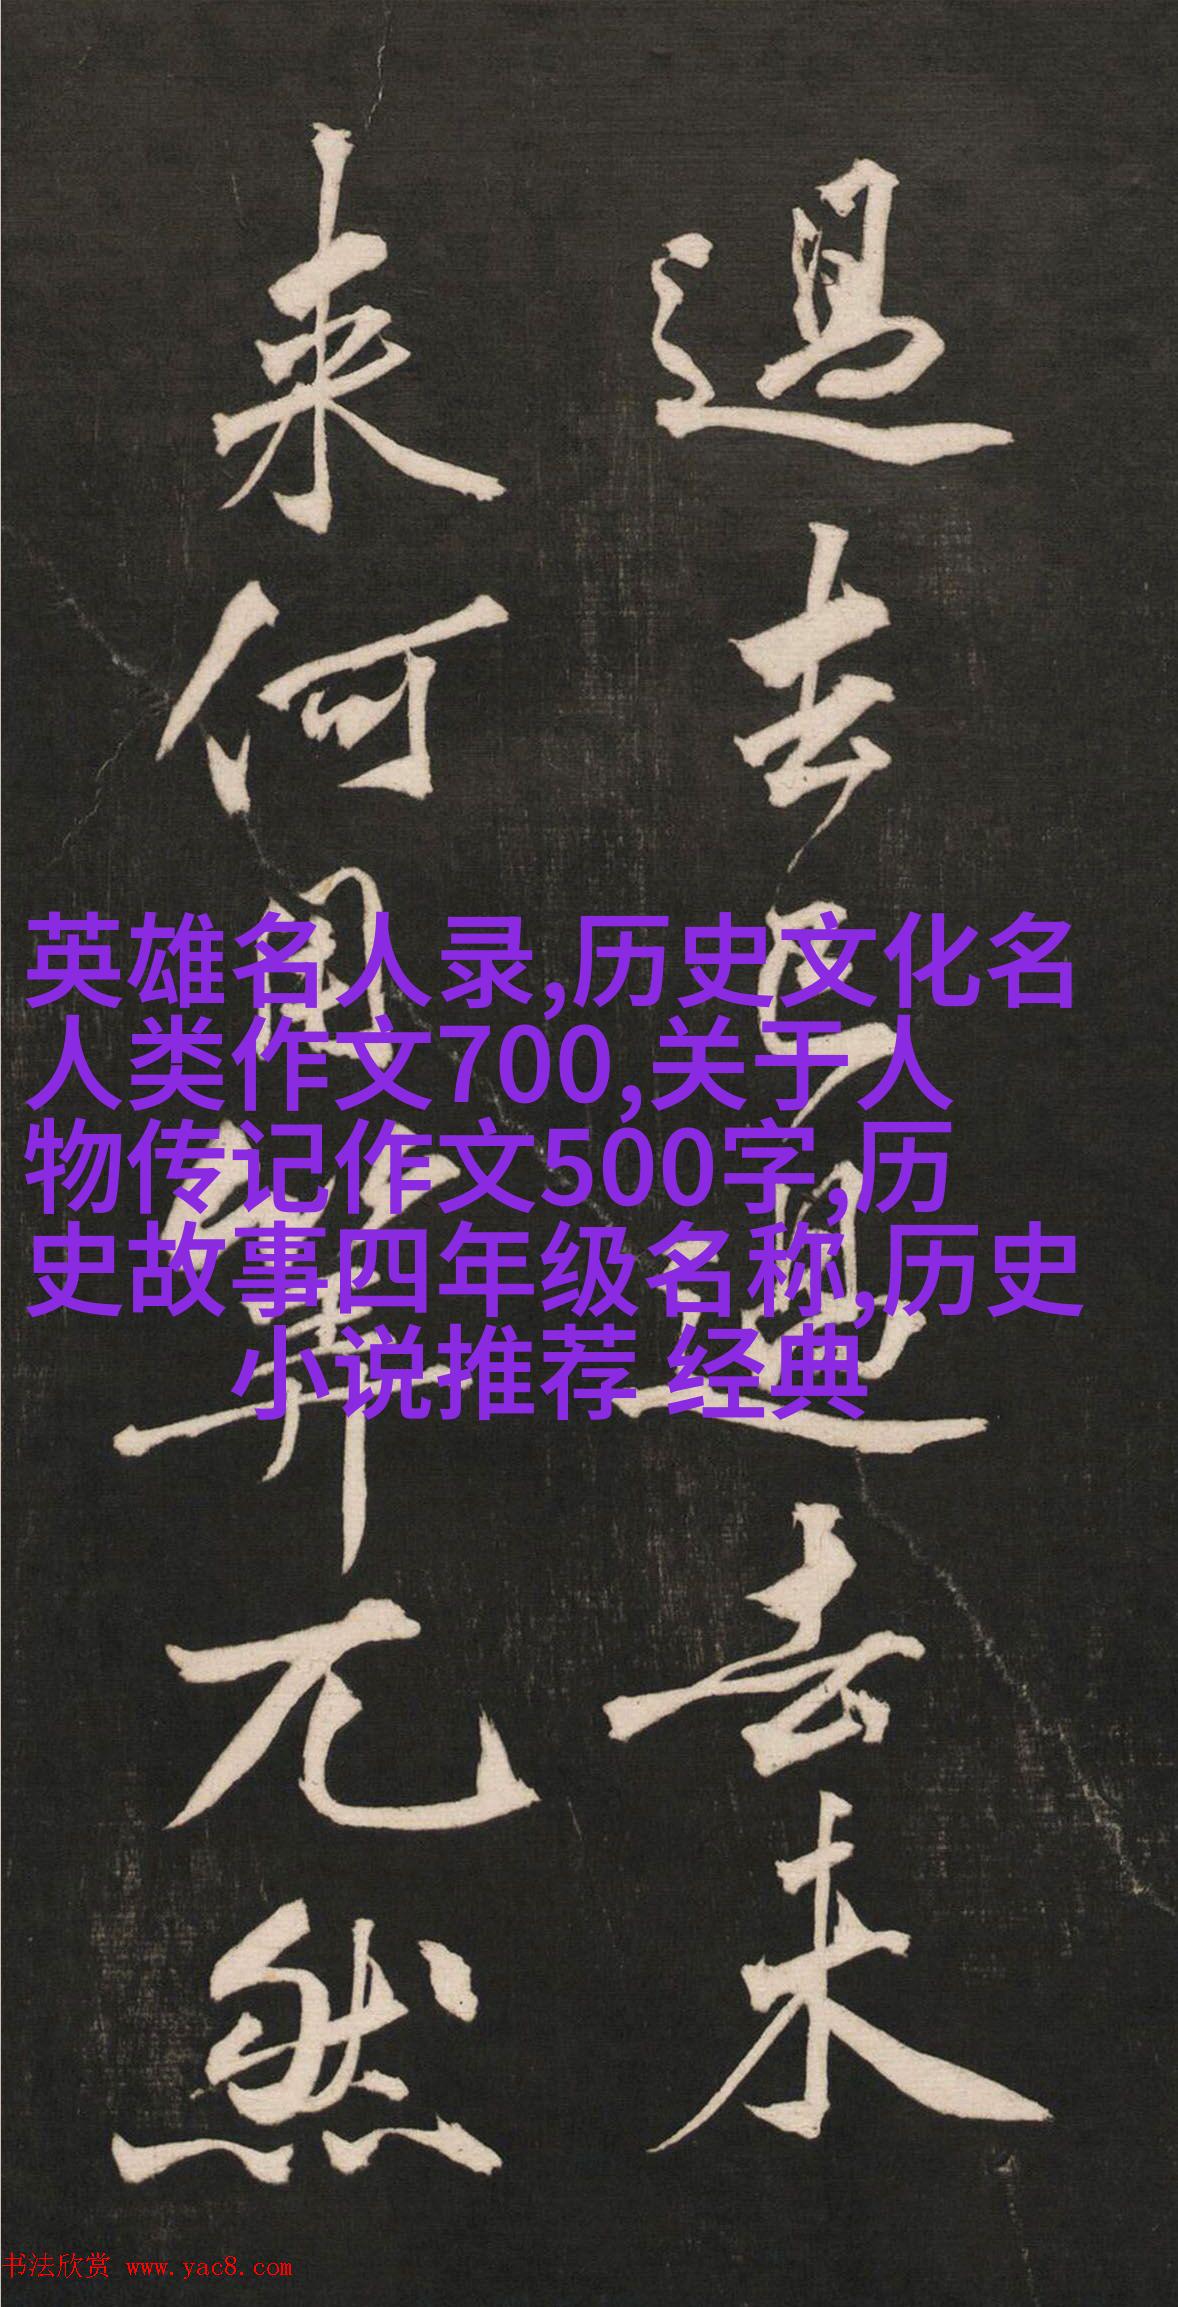 過去已過去未
来何用筭兀然
英雄名人录,历史文化名
人类作文700,关于人
物传记作文500字,历
史故事四年级名称,历史
小说推荐 经典
书法欣赏 www.yac8.com